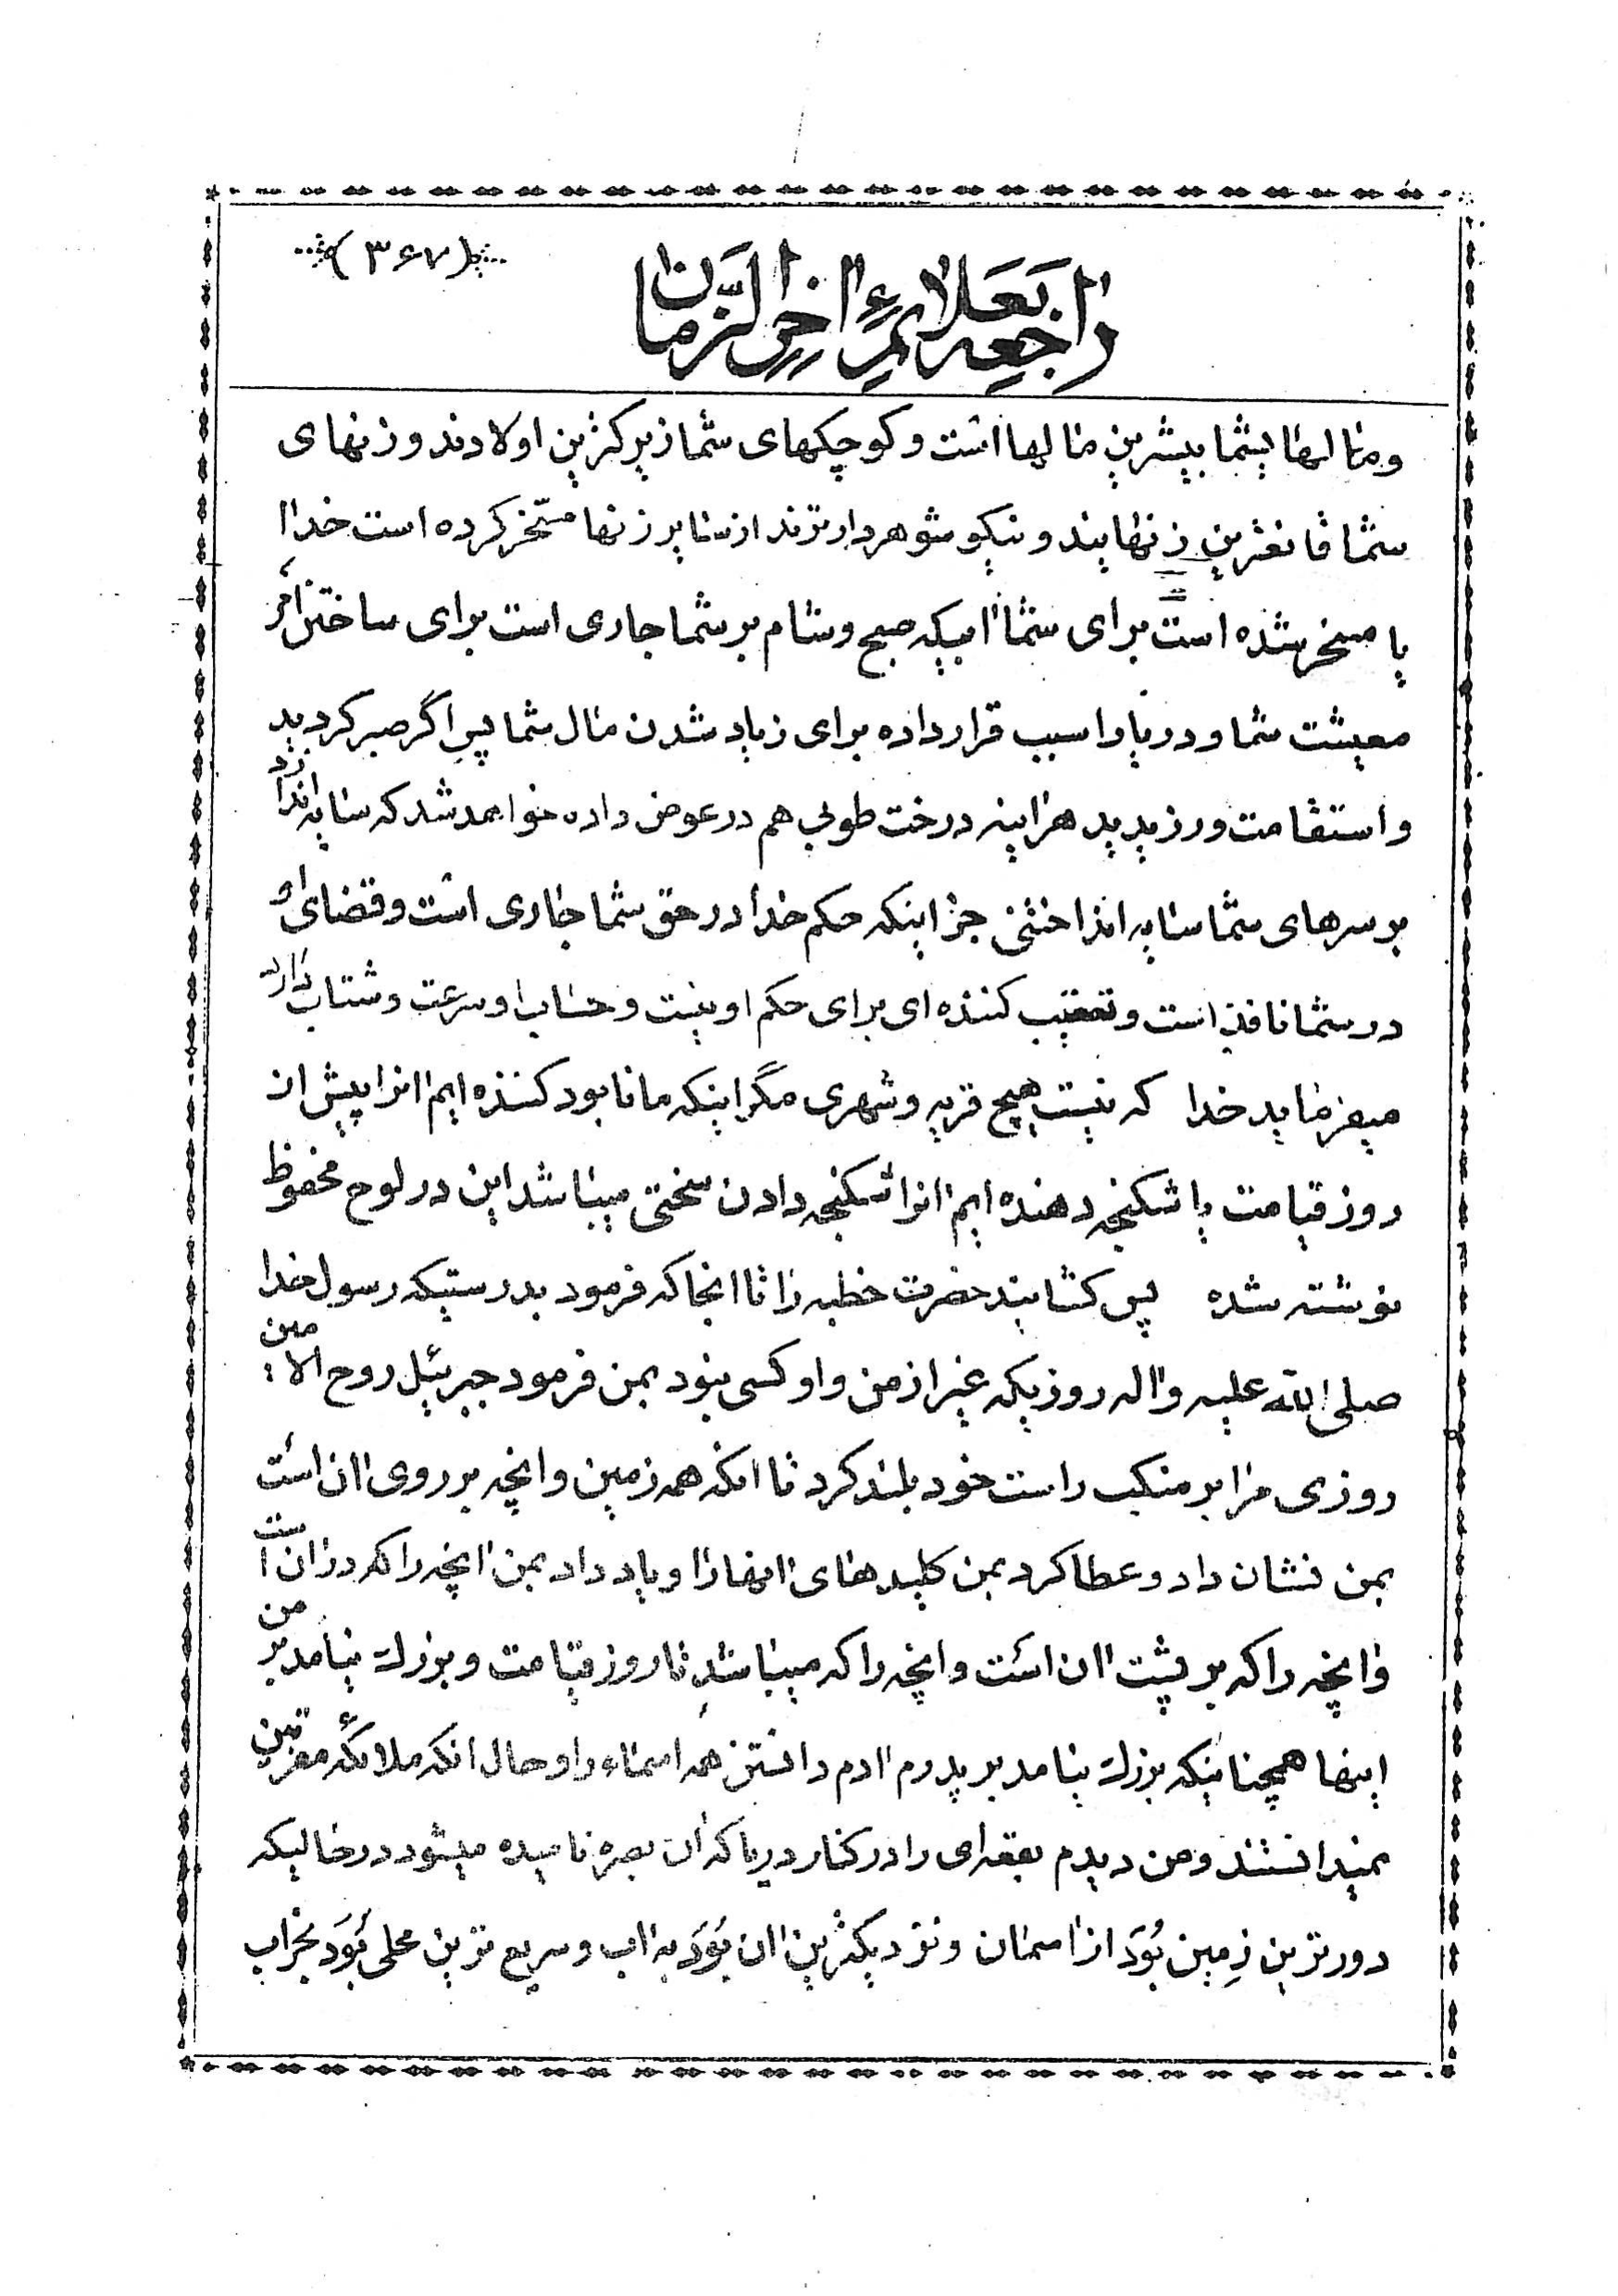 (۳۶۷)
راجعه بعلائم اخر الزمان
و مالهای شما بیشترین مالها است و کوچکهای شما زیرکترین اولادند و زنهای
شما قانعترین زنهایند و نیکو شوهردارترند از سایر زنها مسخر کرده است خدا
یا مسخر شده است برای شما آبیکه صبح و شام بر شما جاری است برای ساختن امر
معیشت شما و دریا را سبب قرار داده برای زیاد شدن مال شما پس اگر صبر کردید
و استقامت ورزیدید هراینه درخت طوبی هم در عوض داده خواهد شد که سایه اندازد
بر سرهای شما سایه انداختنی جز اینکه حکم خدا در حق شما جاری است و قضای او
در شما نافذ است و تعقیب کننده ای برای حکم او نیست و حساب او سرعت و شتاب دارد
میفرماید خدا که نیست هیچ قریه و شهری مگر اینکه ما نابود کننده ایم آنرا پیش از
روز قیامت یا شکنجه دهنده ایم آنرا شکنجه دادن سختی میباشد این در لوح محفوظ
نوشته شده پس کشانید حضرت خطبه را تا آنجا که فرمود بدرستیکه رسول خدا
صلی الله علیه و اله روزیکه غیر از من و او کسی نبود بمن فرمود جبرئیل روح الامین
روزی مرا بر منکب راست خود بلند کرد تا آنکه همه زمین و آنچه بر روی آن است
بمن نشان داد و عطا کرد بمن کلیدهای آنها را و یاد داد بمن آنچه را که در آن است
و آنچه را که بر پشت آن است و آنچه را که میباشد تا روز قیامت و بزرگ نیامد بر من
اینها همچنانیکه بزرگ نیامد بر پدرم آدم دانستن همه اسماء را و حال آنکه ملائکه مقربین
نمیدانستند و من دیدم بقعه ای را در کنار دریا که آن بصره نامیده میشود در حالیکه
دورترین زمین بود از آسمان و نزدیکترین آن بود به آب و سریع ترین محلی بود بخراب